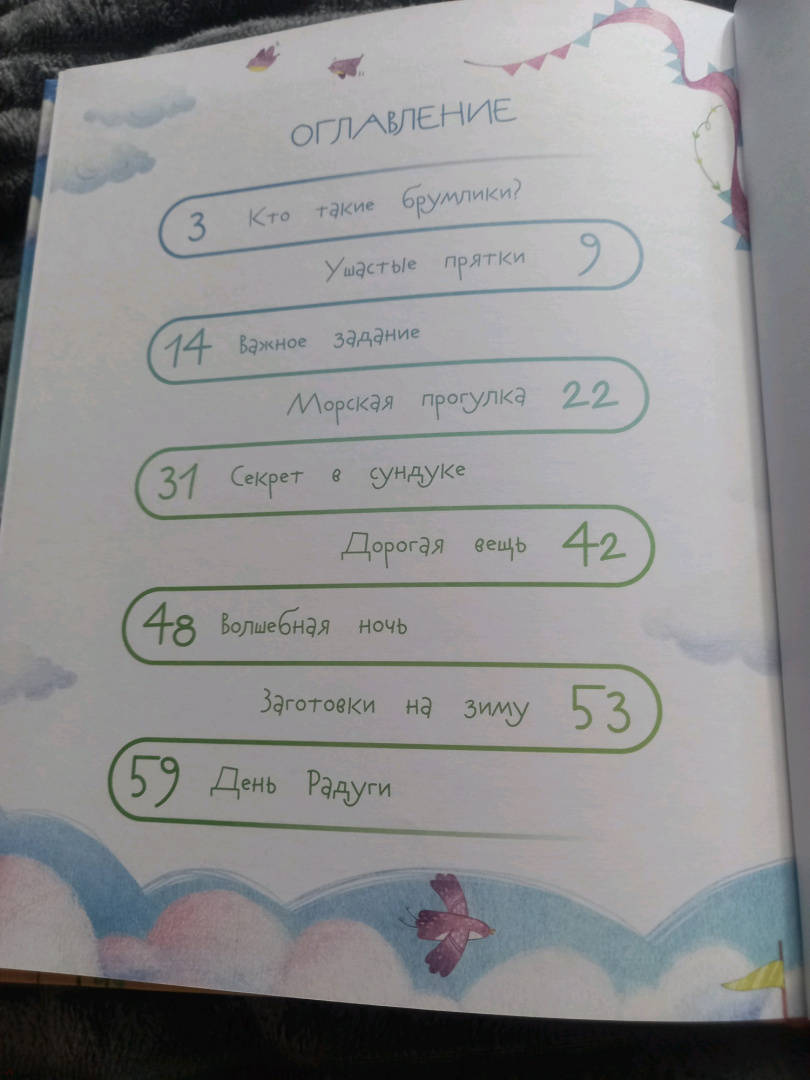 ОГЛАВЛЕНИЕ
3 Кто такие брумлики?
Ушастые прятки 9
14 Важное задание
Морская прогулка 22
31 Секрет в сундуке
Дорогая вещь 42
48 Волшебная ночь
Заготовки на зиму 53
59 День Радуги